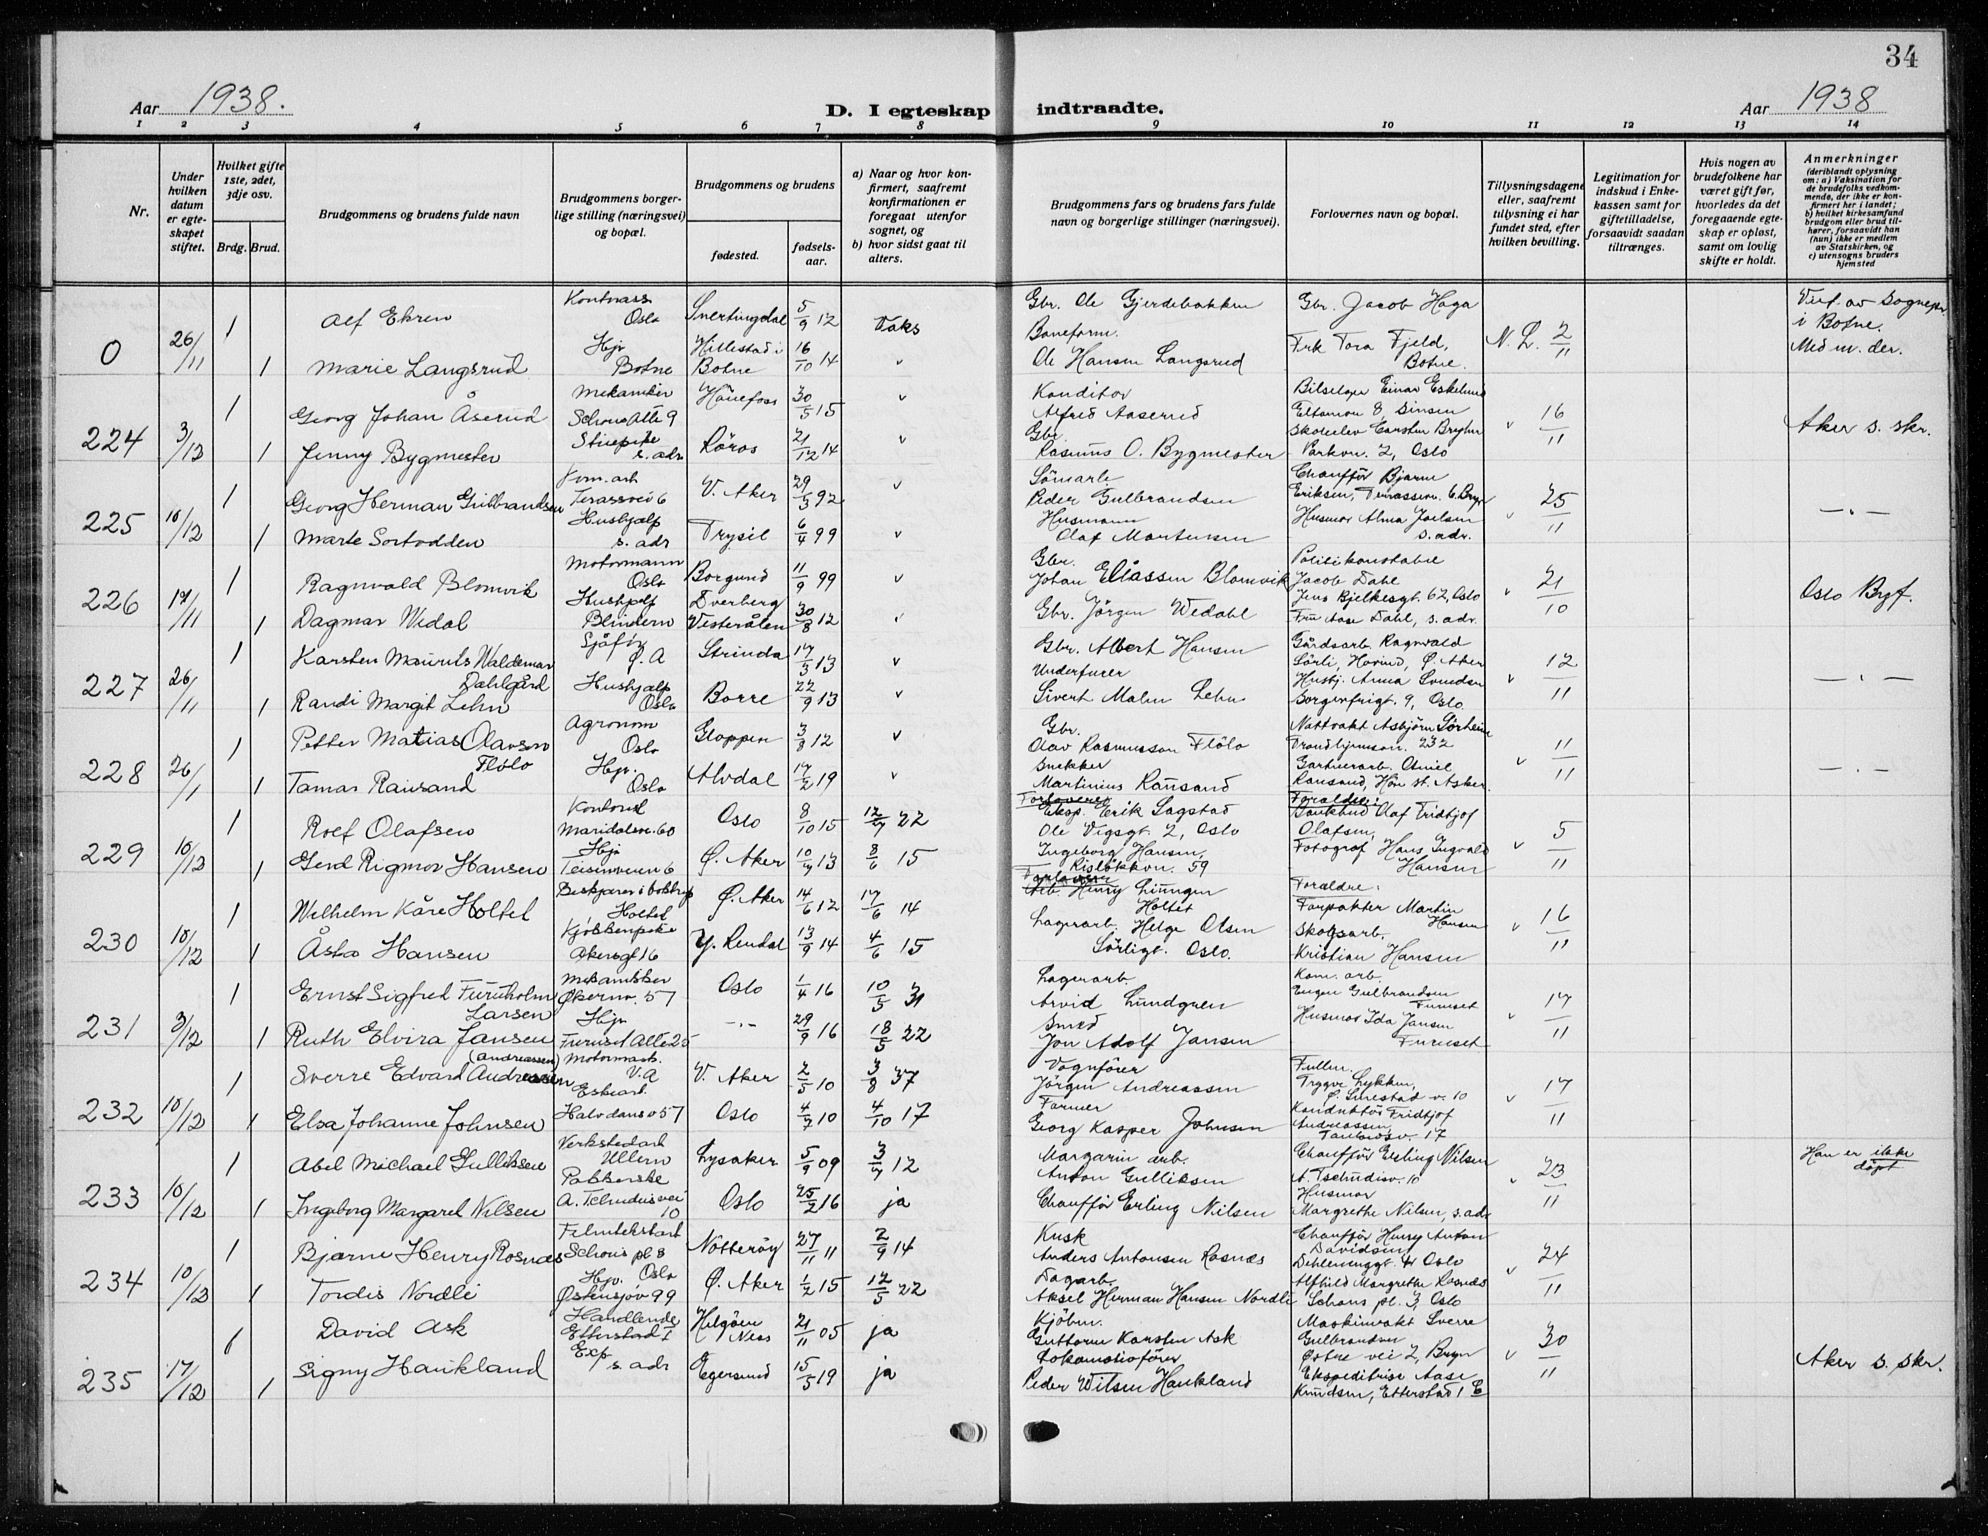 34
Aar 1938.
D. I egteskap indtraadte.
Aar 1938
1 2 3 4 5 6 7 8 9 10 11 12 13 14
Nr.
Under hvilken datum er egteskapet stiftet.
Hvilket gifte 1ste, 2det, 3dje osv.
Brdg. Brud.
Brudgommens og brudens fulde navn
Brudgommens borgerlige stilling (næringsvei) og bopæl.
Brudgommens og brudens
fødested.
fødselsaar.
a) Naar og hvor konfirmert, saafremt konfirmationen er foregaat utenfor sognet, og
b) hvor sidst gaat til alters.
Brudgommens fars og brudens fars fulde navn og borgerlige stillinger (næringsvei).
Forlovernes navn og bopæl.
Tillysningsdagene eller, saafremt tillysning ei har fundet sted, efter hvilken bevilling.
Legitimation for indskud i Enkekassen samt for giftetilladelse, forsaavidt saadan tiltrænges.
Hvis nogen av brudefolkene har været gift før, hvorledes da det foregaaende egteskap er opløst, samt om lovlig skifte er holdt.
Anmerkninger
(deriblandt oplysning om: a) Vaksination for de brudefolks vedkommende, der ikke er konfirmert her i landet; b) hvilket kirkesamfund brudgom eller brud tilhører, forsaavidt han (hun) ikke er medlem av Statskirken, og c) utensogns bruders hjemsted
0 26/11 1 Alf Ehren Oslo Snertingdal 5/9 12 Vaks Gbr. Ole Gjerdebakken Gbr. Jacob Haga
1 Marie Langsrud Hjr Botne Hillestad i Botne 16/10 14 v Baneform. Ole Hansen Langsrud Frk Tora Fjeld, Botne. N. L. 2/11 i Botne. Med m. der.
224 3/12 1 Georg Johan Åserud Mekaniker Schous Alle 9 Hönefoss 30/5 15 v Konditor Alfred Aaserud Einar Eskelund 8, Sinsen
1 Jenny Bygmester s. adr Röros 21/12 14 v Gbr. Rasmus O. Bygmester Parkvn. 2, Oslo v 16/11 Aker s. skr.
225 10/12 1 Georg Herman Gulbrandsen Terassvei 6 V. Aker 29/3 92 v Peder Gulbrandsen Chauffør Bjarne Eriksen, Terrassvn. 6 Bryn
1 Marte Sortodden Hushjælp s. adr Trysil 6/4 99 v Husmann Olaf Mortensen Husmor Alma Joelsen s. adr. v 25/11 —"—
226 17/11 1 Ragnvald Blomvik Motormann Oslo Borgund 11/9 99 v Gbr. Johan Eliassen Blomvik Politikonstabel Jacob Dahl Jens Bjelkesgt. 62, Oslo
1 Dagmar Wedal Hushjelp Blindern Dverberg Vesterålen 30/8 12 v Gbr. Jörgen Wedahl Fru Aase Dahl, s. adr. v 21/10 Oslo Bygf.
227 26/11 1 Karsten Maurits Waldemar Dahlgård Sjåfør Ø. A Strinda 17/3 13 v Gbr. Albert Hansen Gårdsarb. Ragnvald Sörli, Hovind, Ø. Aker
1 Randi Margit Lehn Hushjælp Oslo Borre 22/9 13 v Underfurer Sivert Malm Lehn Husbj. Anna Svendsen Borgenfrigt. 9, Oslo v 12/11 —"—
228 26/1 1 Petter Matias Olavson Flölo Agronom Oslo Gloppen 3/8 12 v Gbr. Olav Rasmusson Flölo Nattvakt Asbjörn Sörheim Trondhjemsvn. 232
1 Tamar Rausand Hjr. Oslo Alvdal 17/2 19 v Snekker Martinius Rausand Gartnerarb. Rausand, st. Asker v 11/11 —"—
229 10/12 1 Rolf Olafsen Maridalsv. 60 Oslo 8/10 15 12/4 22 Forlovere: Eksp. Erik Sagstad Ole Vigsgt. 2, Oslo Foreldre: Olaf Fridtjof Olafsen
1 Gerd Rigmor Hansen Hjr Teisenveien 6 Ø. Aker 10/4 13 8/6 15 Ingeborg Hansen, 59 Fotograf Hans Ingvald Hansen v 5/11
230 10/12 1 Wilhelm Kåre Holtet Holtet Ø. Aker 14/6 12 17/6 14 Forlovere Arb. Henry Ljungen Holtet Foreldre: Forpakter Martin Hansen
1 Åsta Hansen Kjökkenpike Akersgt 16 Y. Rendal 13/9 14 4/6 15 Lagerarb. Helge Olsen Sörligt. Oslo. Skogsarb. Kristian Hansen v 16/11
231 3/12 1 Ernst Sigfred Furuholm Larsen Mekaniker Økernv. 57 Oslo 1/4 16 10/5 31 Lagerarb. Arvid Lundgren Kom. arb. Eugen Gulbrandsen Furuset
1 Ruth Elvira Jansen Hjr Furuset Alle 25 —"— 29/9 16 18/5 22 Smed Jon Adolf Jansen Husmor Ida Jansen Furuset v 17/11
232 10/12 1 Sverre Edvard Andreassen (Andreassen) V. A V. Aker 2/5 10 3/8 37 Vognfører Jörgen Andreassen Trygve Lykken, v. 10
1 Elsa Johanne Johnsen Oslo 4/7 10 4/10 17 Former Georg Kasper Johnsen Konduktör Fridtjof Andreassen v. 17 v 17/11
233 10/12 1 Abel Michael Gulliksen Verkstedarb Ullern Lysaker 5/9 09 3/4 12 Margarin arb. Anton Gulliksen Chauffør Erling Nilsen A. Tschudisv. 10 Han er ikke döpt
1 Ingeborg Margaret Nilsen Pakkerske 10 Oslo 25/2 16 ja Chauffør Erling Nilsen Husmor Margrethe Nilsen, s. adr v 23/11
234 10/12 1 Bjarne Henry Rosnæs Schous pl 8 Oslo Nötteröy 27/11 11 2/9 14 Kusk Anders Antonsen Rosnæs Chauffør Henry Anton Davidsen 4 Oslo
1 Tordis Nordli Hjr. Østensjöv 99 Ø. Aker 1/2 15 12/5 22 Dagarb. Aksel Herman Hansen Nordli Alfhild Margrethe Rosnæs Schous pl. 3, Oslo v 24/11
235 17/12 1 David Ask Handlende Etterstad 1 Helgöen Ness 21/11 05 ja Kjöbm. Guttorm Karsten Ask Maskinvakt Sverre Gulbrandsen Østre vei 2, Bryn
1 Signy Haukland Exp s. adr Egersund 15/5 19 ja Lokomotivfører Peder Wilsen Haukland Ekspeditrise Aase Knudsen, Etterstad 1 E v 30/11 Aker s. skr.